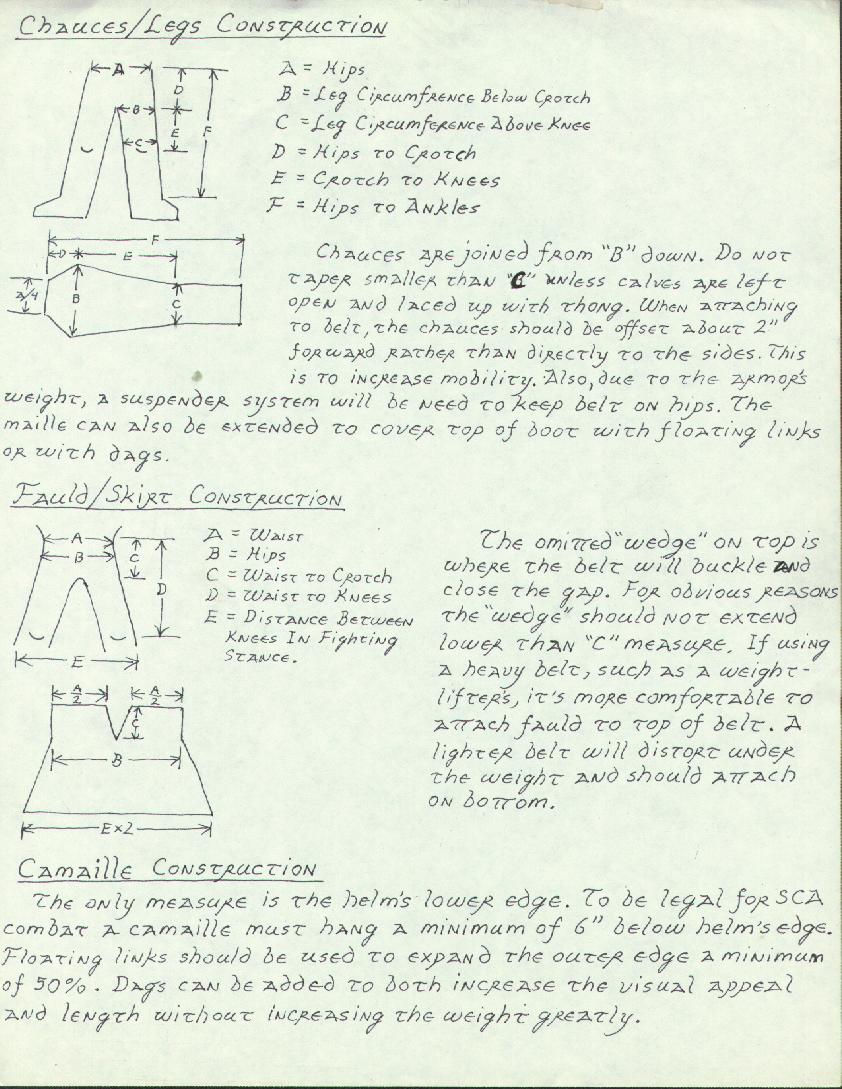 Chauces/Legs Construction
A
D
B
E
F
C
A = Hips
B = Leg Circumfrence Below Crotch
C = Leg Circumference Above Knee
D = Hips to Crotch
E = Crotch to Knees
F = Hips to Ankles
F
D E
A/4
B
C
Chauces are joined from "B" down. Do not
taper smaller than "C" unless calves are left
open and laced up with thong. When attaching
to belt, the chauces should be offset about 2"
forward rather than directly to the sides. This
is to increase mobility. Also, due to the armor's
weight, a suspender system will be need to keep belt on hips. The
maille can also be extended to cover top of boot with floating links
or with dags.
Fauld/Skirt Construction
A
B
C
D
E
A = Waist
B = Hips
C = Waist to Crotch
D = Waist to Knees
E = Distance Between
Knees In Fighting
Stance.
A/2 A/2
C
B
E x 2
The omitted "wedge" on top is
where the belt will buckle and
close the gap. For obvious reasons
the "wedge" should not extend
lower than "C" measure. If using
a heavy belt, such as a weight-
lifter's, it's more comfortable to
attach fauld to top of belt. A
lighter belt will distort under
the weight and should attach
on bottom.
Camaille Construction
The only measure is the helm's lower edge. To be legal for SCA
combat a camaille must hang a minimum of 6" below helm's edge.
Floating links should be used to expand the outer edge a minimum
of 50%. Dags can be added to both increase the visual appeal
and length without increasing the weight greatly.